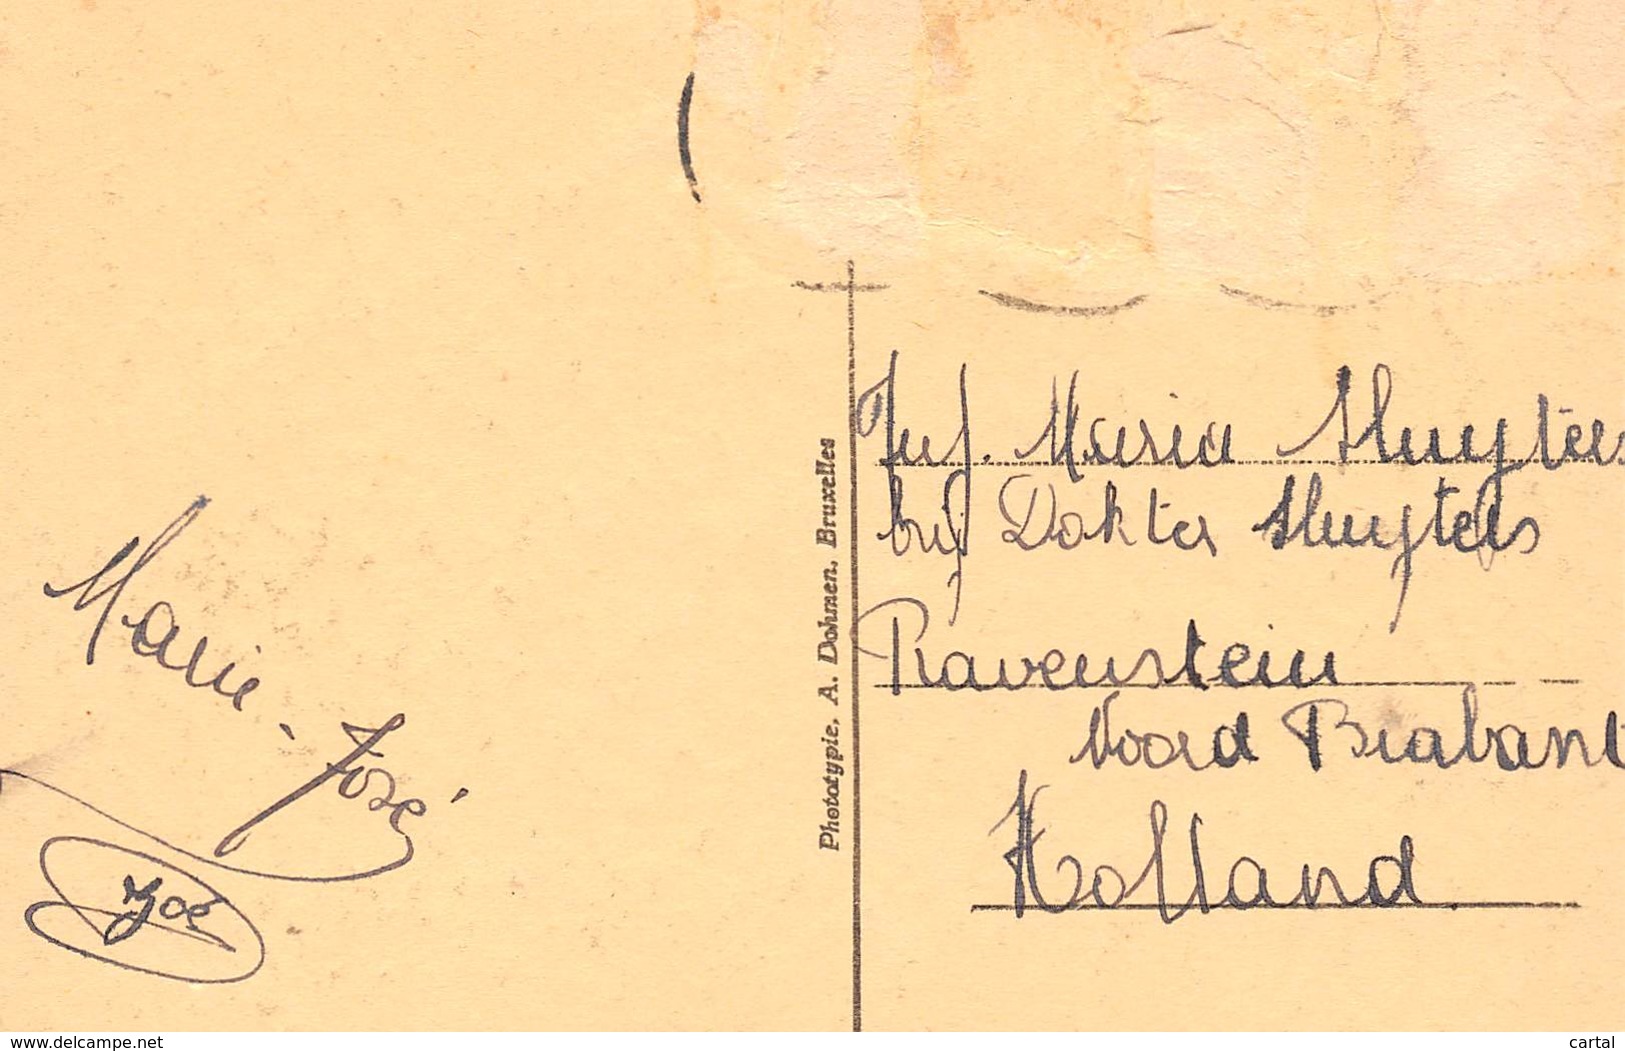 Marie-José
Joé
Phototypie, A. Dohmen, Bruxelles
Juf. Maria Sluyters
bij Dokter Sluyters
Ravenstein
Noord Brabant
Holland.
www.delcampe.net
cartal